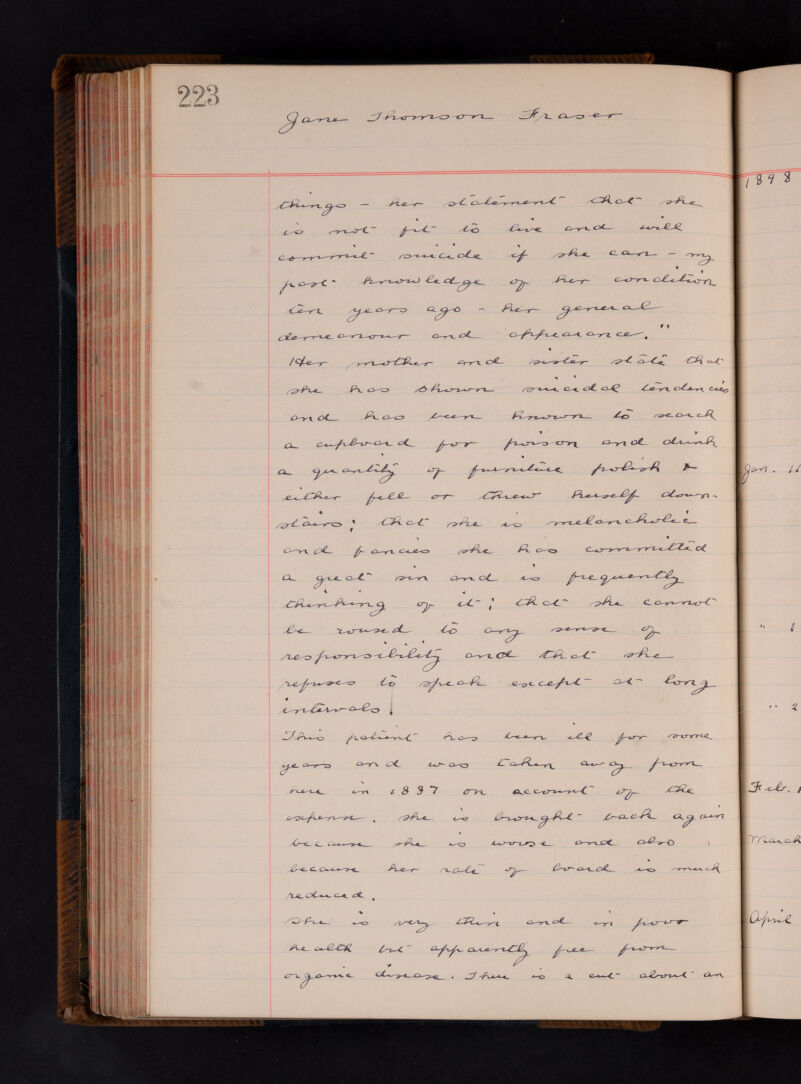 223
Jane Thomson Fraser
things - her statement that she
is not fit to live and will
commit suicide if she can - my
past knowledge of her condition
ten years ago - her general
demeanour and appearance."
Her mother and sister state that
she has shown suicidal tendencies
and has been known to search
a cupboard for poison and drink
a quantity of furniture polish &
either fell or threw herself down-
stairs; that she is melancholic
and fancies she has committed
a great sin and is frequently
thinking of it; that she cannot
be roused to any sense of
responsibility and that she
refuses to speak except at long
intervals.
This patient has been ill for some
years and was taken away from
here in 1887 on account of the
expense. She is brought back again
because she is worse and also
because her rate of board is much
reduced.
She is very thin and in poor
health but apparently free from
organic disease. There is a cut about an
1898
Jan. 11
" 1
" 2
Feb. 1
March
April